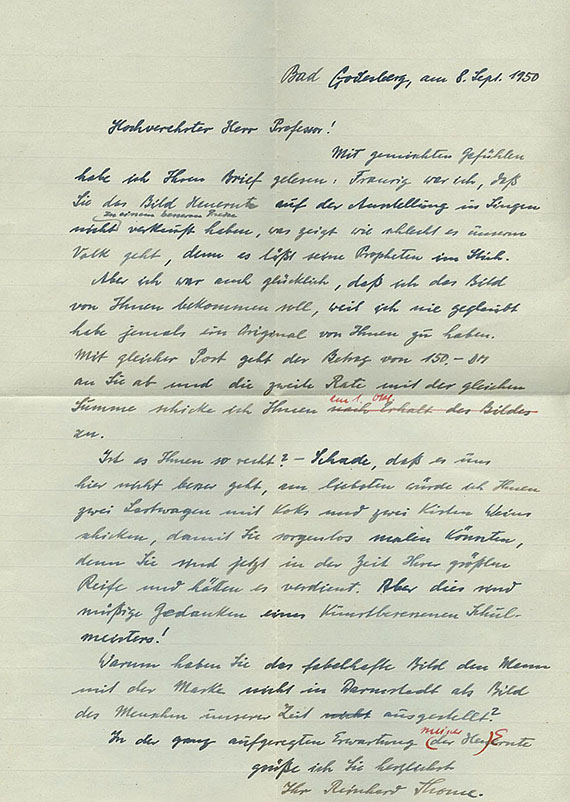 Bad Godesberg, am 8. Sept. 1950
Hochverehrter Herr Professor!
Mit gemischten Gefühlen
habe ich Ihren Brief gelesen: Traurig war ich, daß
Sie das Bild Heuernte auf der Ausstellung in Singen
zu einem besseren Preise
nicht verkauft haben, was zeigt wie schlecht es unserm
Volk geht, denn es läßt seine Propheten im Stich.
Aber ich war auch glücklich, daß ich das Bild
von Ihnen bekommen soll, weil ich nie geglaubt
habe jemals ein Original von Ihnen zu haben.
Mit gleicher Post geht der Betrag von 150.- DM
an Sie ab und die zweite Rate mit der gleichen
am 1. Okt.
Summe schicke ich Ihnen nach Erhalt des Bildes
zu.
Ist es Ihnen so recht? - Schade, daß es uns
hier nicht besser geht, am liebsten würde ich Ihnen
zwei Lastwagen mit Koks und zwei Kisten Weins
schicken, damit Sie sorgenlos malen könnten,
denn Sie sind jetzt in der Zeit Ihrer größten
Reife und hätten es verdient. Aber dies sind
müßige Gedanken eines Kunstbesessenen Schul-
meisters!
Warum haben Sie das fabelhafte Bild den Mann
mit der Maske nicht in Darmstadt als Bild
des Menschen unserer Zeit nicht ausgestellt?
meiner
In der ganz aufgeregten Erwartung (der Heu)Ernte
grüße ich Sie herzlichst
Ihr Reinhard Thome.